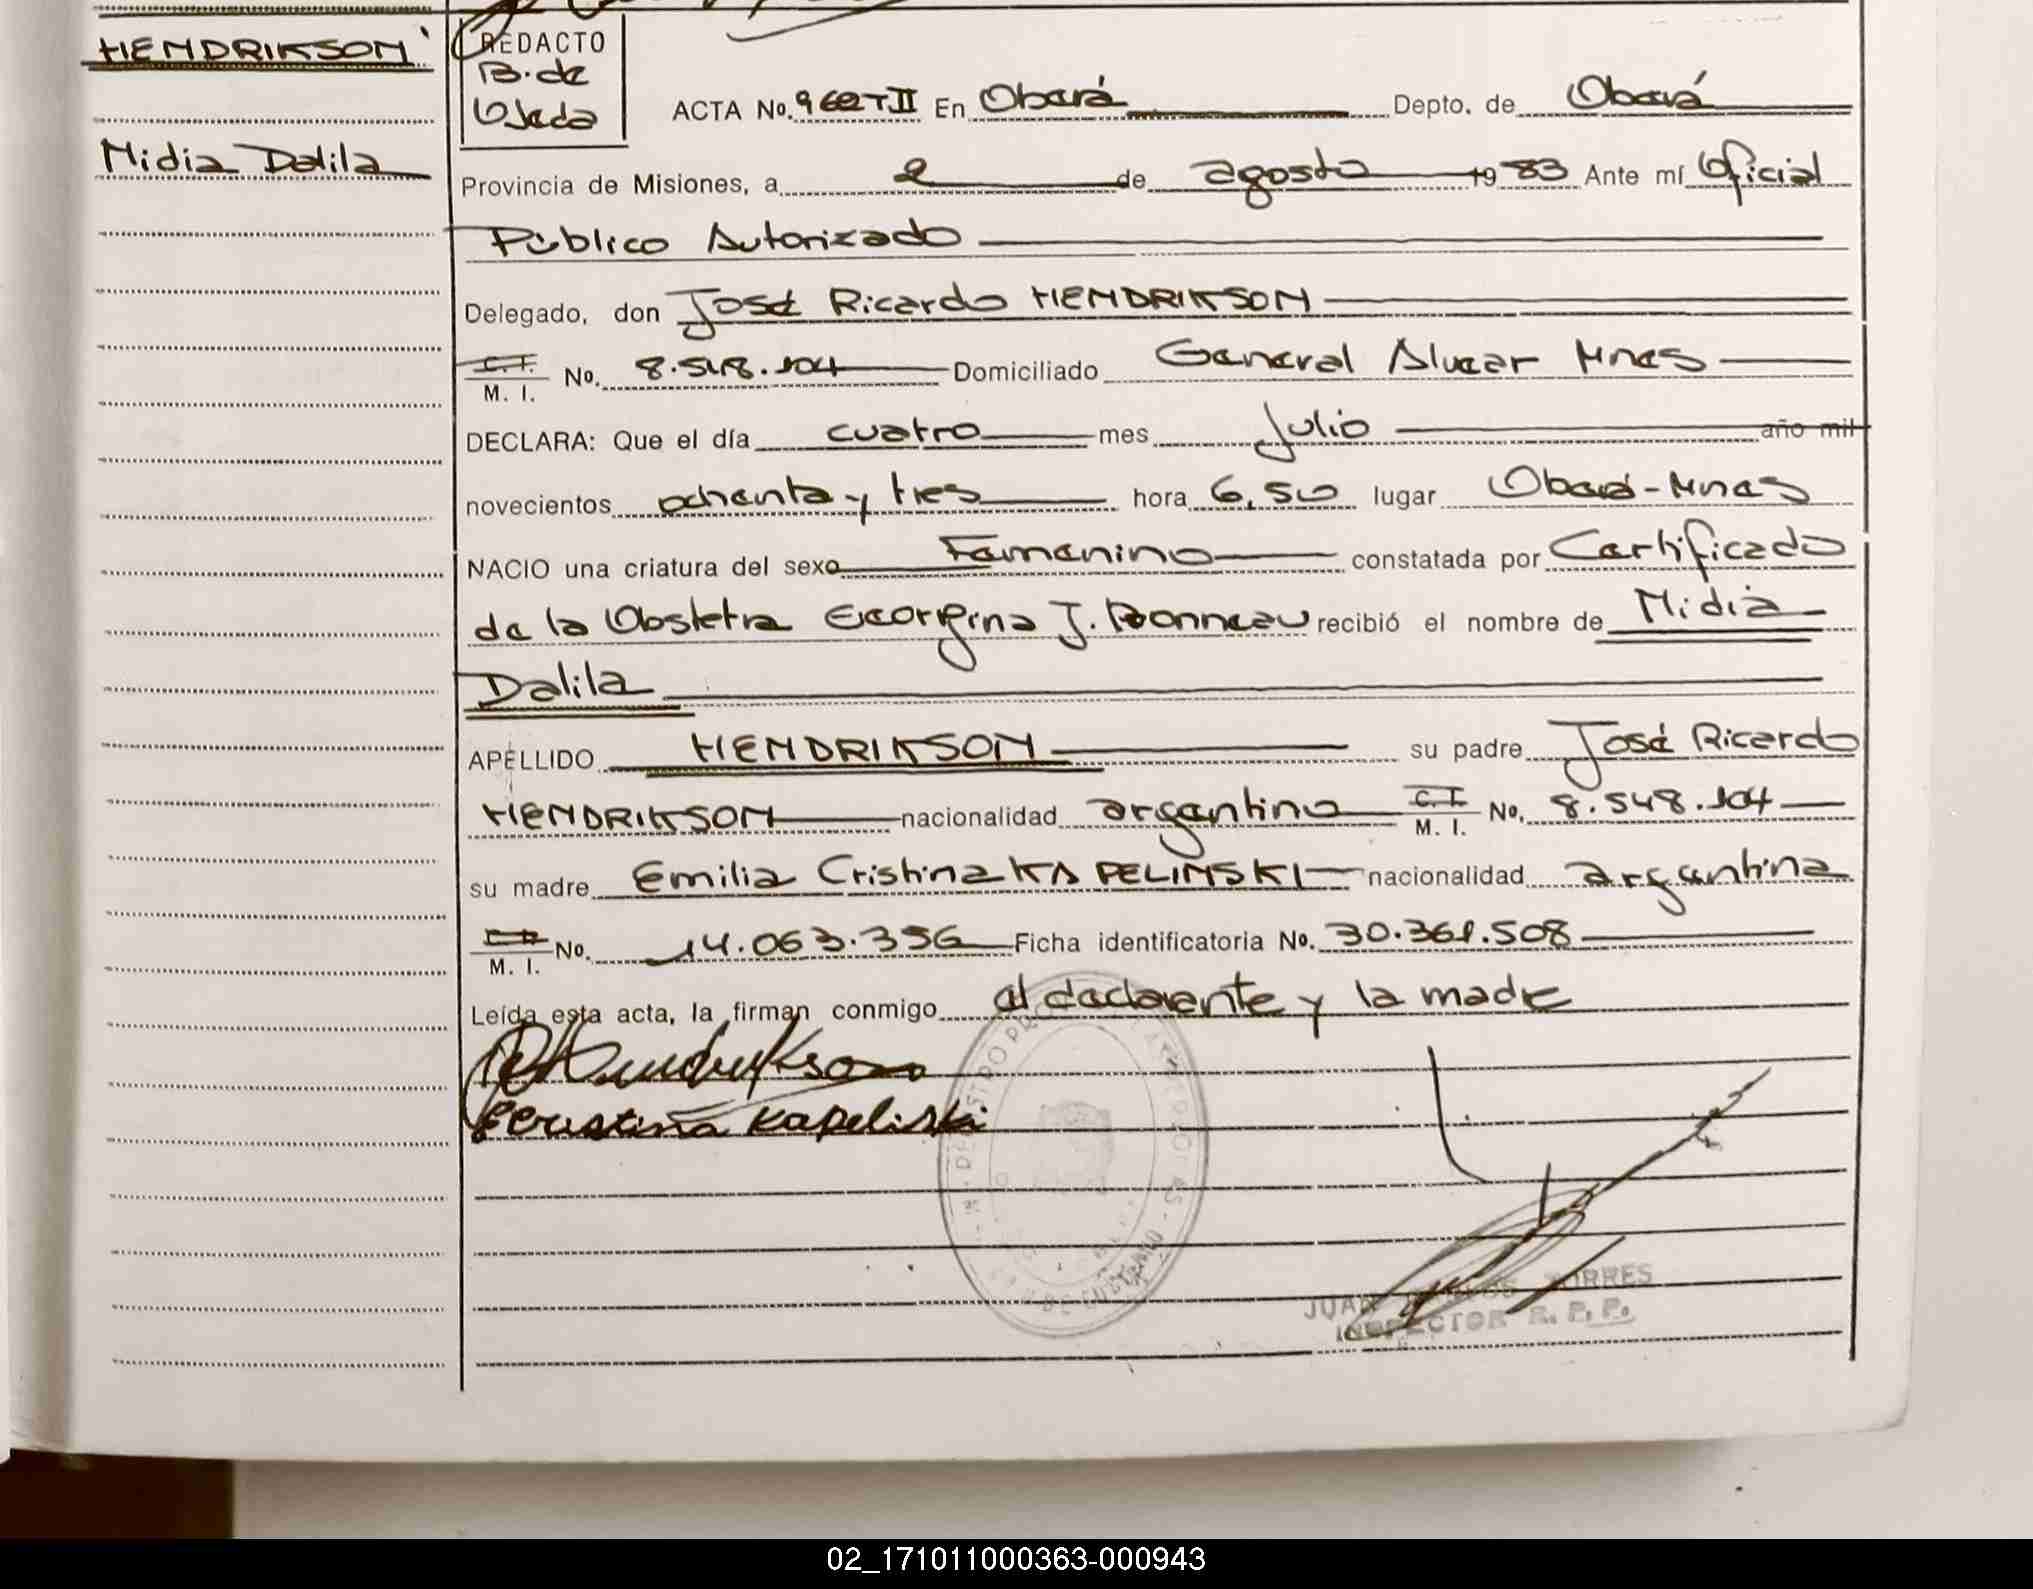 HENDRIKSON
Midia Dalila
REDACTO
B. de
Ojeda
ACTA No. 962 T II En Oberá Depto. de Oberá
Provincia de Misiones, a 2 de agosto 1983 Ante mí Oficial
Público Autorizado
Delegado, don José Ricardo HENDRIKSON
C. I.
M. I. No. 8.548.104 Domiciliado General Alvear Mnes
DECLARA: Que el día cuatro mes Julio año mil
novecientos ochenta y tres hora 6,50 lugar Oberá-Mnes
NACIO una criatura del sexo Femenino constatada por Certificado
de la Obstetra Georgina J. Bonneau recibió el nombre de Midia
Dalila
APELLIDO HENDRIKSON su padre José Ricardo
HENDRIKSON nacionalidad argentino C. I.
M. I. No. 8.548.104
su madre Emilia Cristina KAPELINSKI nacionalidad argentina
M. I. No. 14.063.356 Ficha identificatoria No. 30.361.508
Leída esta acta, la firman conmigo el declarante y la madre
Hendrikson
Cristina Kapeliski
JUAN TORRES
INSPECTOR R. P. P.
02_171011000363-000943